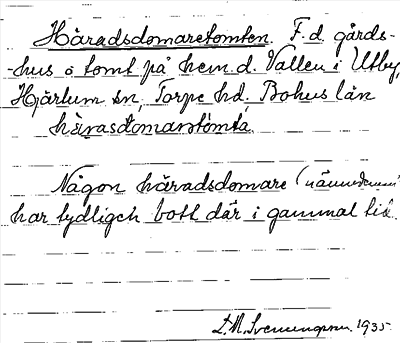 Häradsdomaretomten. F. d. gårds-
-hus o tomt på hem.d. Vallen i Utby,
Hjärtum sn, Torpe hd, Bohus län
häradsdomarstomta
Någon häradsdomare (nämndeman)
har tydligen bott där i gammal tid.
1935